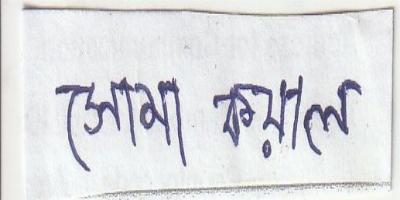 সোমা কয়াল